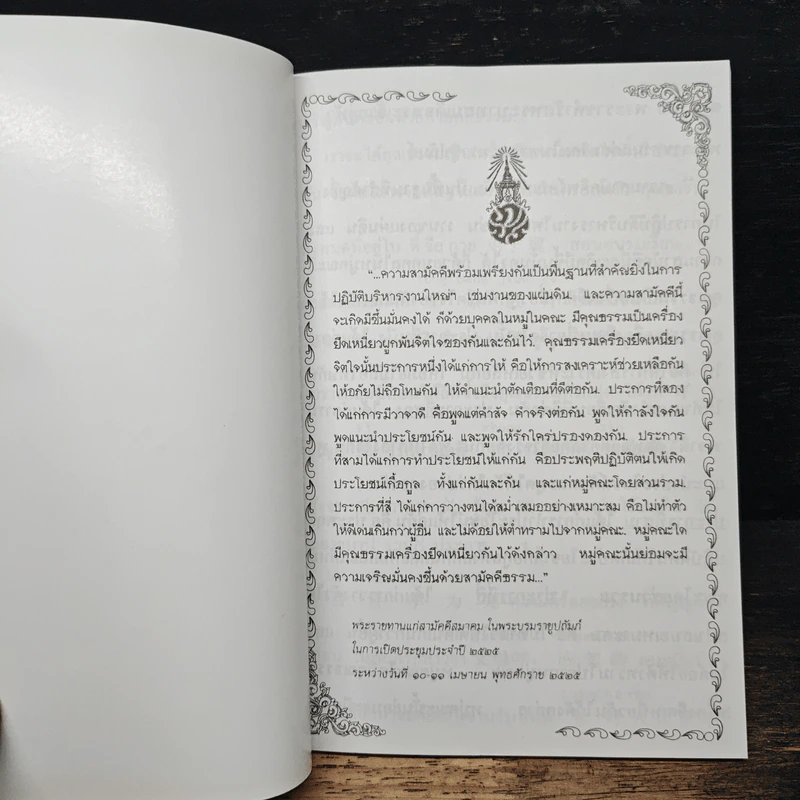 “...ความสามัคคีพร้อมเพรียงกันเป็นพื้นฐานที่สำคัญยิ่งในการ
ปฏิบัติบริหารงานใหญ่ๆ เช่นงานของแผ่นดิน. และความสามัคคีนี้
จะเกิดมีขึ้นมั่นคงได้ ก็ด้วยบุคคลในหมู่ในคณะ มีคุณธรรมเป็นเครื่อง
ยึดเหนี่ยวผูกพันจิตใจของกันและกันไว้. คุณธรรมเครื่องยึดเหนี่ยว
จิตใจนั้นประการหนึ่งได้แก่การให้ คือให้การสงเคราะห์ช่วยเหลือกัน
ให้อภัยไม่ถือโทษกัน ให้คำแนะนำตักเตือนที่ดีต่อกัน. ประการที่สอง
ได้แก่การมีวาจาดี คือพูดแต่คำสัจ คำจริงต่อกัน พูดให้กำลังใจกัน
พูดแนะนำประโยชน์กัน และพูดให้รักใคร่ปรองดองกัน. ประการ
ที่สามได้แก่การทำประโยชน์ให้แก่กัน คือประพฤติปฏิบัติตนให้เกิด
ประโยชน์เกื้อกูล ทั้งแก่กันและกัน และแก่หมู่คณะโดยส่วนรวม.
ประการที่สี่ ได้แก่การวางตนได้สม่ำเสมออย่างเหมาะสม คือไม่ทำตัว
ให้ดีเด่นเกินกว่าผู้อื่น และไม่ด้อยให้ต่ำทรามไปจากหมู่คณะ. หมู่คณะใด
มีคุณธรรมเครื่องยึดเหนี่ยวกันไว้ดังกล่าว หมู่คณะนั้นย่อมจะมี
ความเจริญมั่นคงขึ้นด้วยสามัคคีธรรม...”
พระราชทานแก่สามัคคีสมาคม ในพระบรมราชูปถัมภ์
ในการเปิดประชุมประจำปี ๒๕๒๕
ระหว่างวันที่ ๑๐-๑๑ เมษายน พุทธศักราช ๒๕๒๕